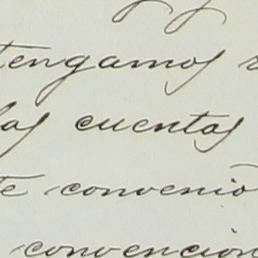 tengamos
las cuentas
te convenio
convencion